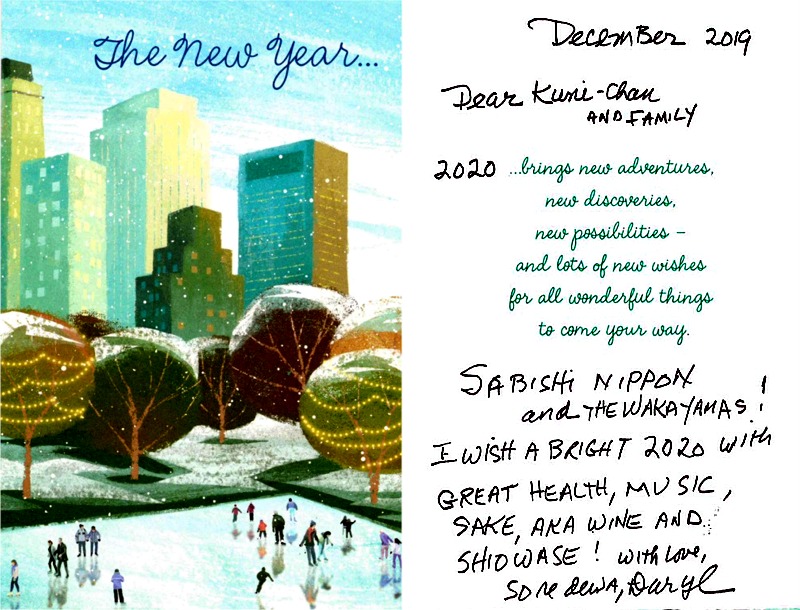 The New Year...
December 2019
Dear Kuni-chan
AND FAMILY
2020 ...brings new adventures,
new discoveries,
new possibilities –
and lots of new wishes
for all wonderful things
to come your way.
SABISHi NIPPON
and THE WAKAYAMAS!
I WISH A BRIGHT 2020 with
GREAT HEALTH, MUSIC,
SAKE, AKA WINE AND
SHIOWASE! with love,
SORE dewa, Daryl